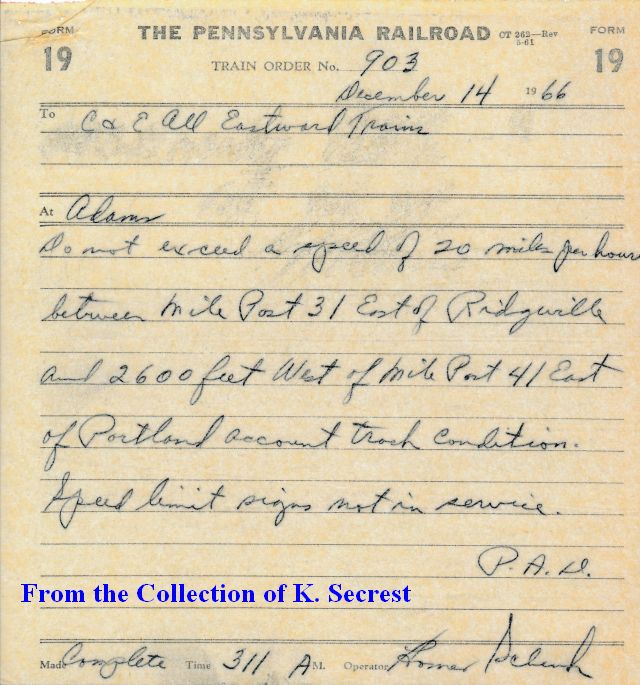 FORM 19 THE PENNSYLVANIA RAILROAD CT 262—Rev 5-61 FORM 19
TRAIN ORDER No. 903
December 14 1966
To C & E All Eastward Trains
At Adams
Do not exceed a speed of 20 miles per hour
between Mile Post 31 East of Ridgeville
and 2600 feet West of Mile Post 41 East
of Portland account track condition.
Speed limit signs not in service.
P. A. D.
From the Collection of K. Secrest
Made Complete Time 311 A M. Operator Homer